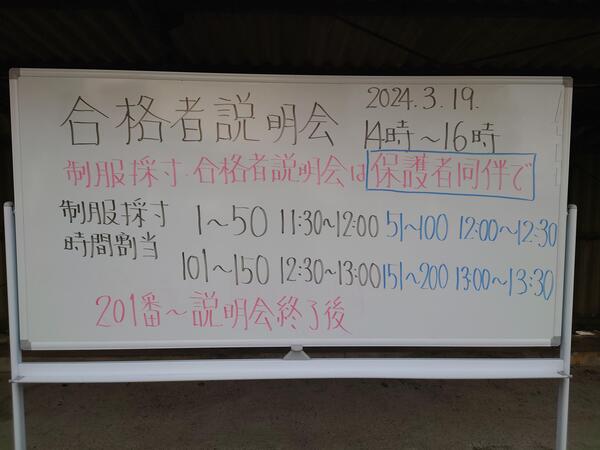 合格者説明会 2024.3.19.
14時～16時
制服採寸・合格者説明会は保護者同伴で
制服採寸 1～50 11:30～12:00 51～100 12:00～12:30
時間割当
101～150 12:30～13:00 151～200 13:00～13:30
201番～説明会終了後